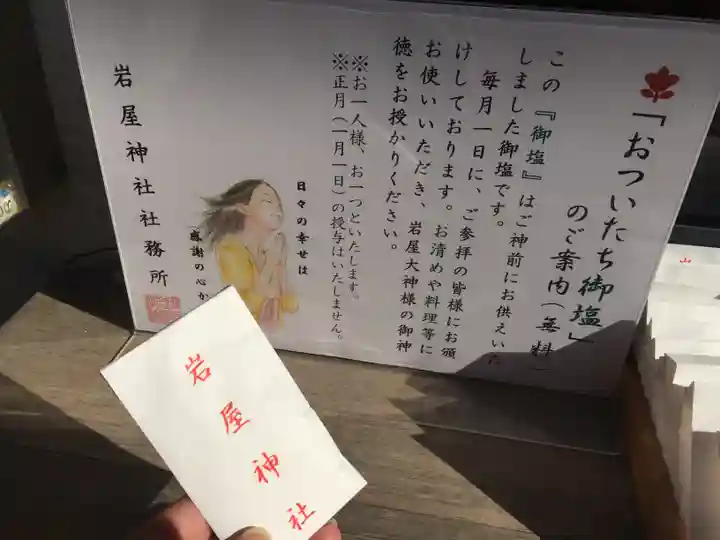 「おついたち御塩」
のご案内(無料)
この『御塩』はご神前にお供えいた
しました御塩です。
毎月一日に、ご参拝の皆様にお頒
けしております。お清めや料理等に
お使いいただき、岩屋大神様の御神
徳をお授かりください。
※お一人様、お一つといたします。
※正月(一月一日)の授与はいたしません。
日々の幸せは
感謝の心か
岩屋神社社務所
岩屋神社